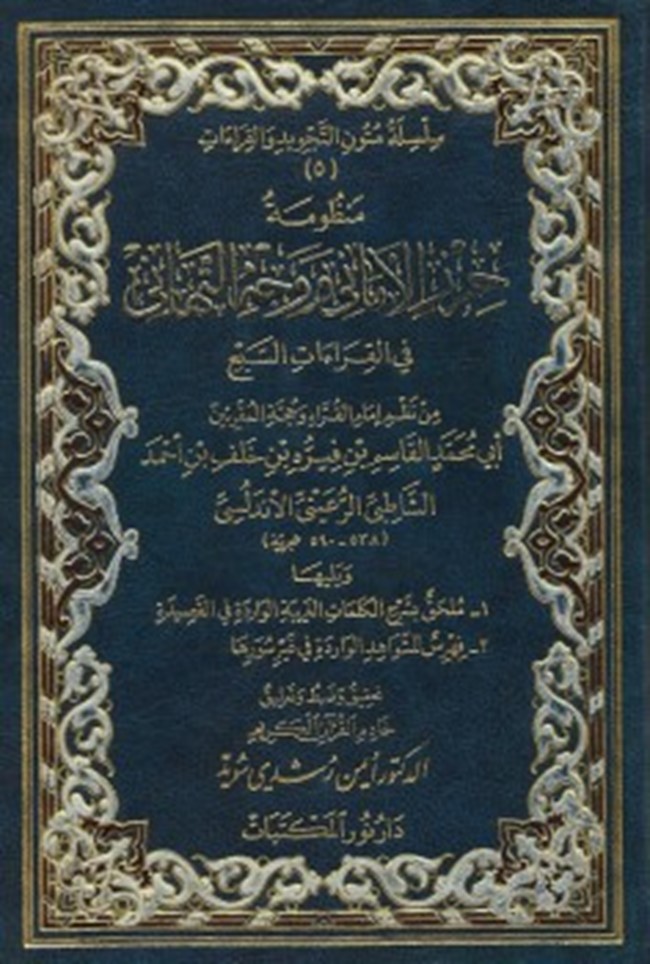 سِلْسِلَةُ مُتُونِ التَّجْوِيدِ وَالقِرَاءَاتِ
(٥)
مَنْظُومَةُ
حِرْزُ الأَمَانِي وَوَجْهُ التَّهَانِي
فِي القِرَاءَاتِ السَّبْعِ
مِنْ نَظْمِ إِمَامِ القُرَّاءِ وَحُجَّةِ المُقْرِئِينَ
أَبِي مُحَمَّدٍ القَاسِمِ بْنِ فِيرُّه بْنِ خَلَفِ بْنِ أَحْمَدَ
الشَّاطِبِيِّ الرُّعَيْنِيِّ الأَنْدَلُسِيِّ
(٥٣٨ - ٥٩٠ هجرية)
وَيَلِيهَا
١- مُلْحَقٌ بِشَرْحِ الكَلِمَاتِ الغَرِيبَةِ الوَارِدَةِ فِي القَصِيدَةِ
٢- فِهْرِسٌ لِلشَّوَاهِدِ الوَارِدَةِ فِي غَيْرِ سُوَرِهَا
تحقيق وضبط وتعليق
خَادِمِ القُرْآنِ الكَرِيمِ
الدكتور أيمن رشدي سويد
دَارُ نُورِ المَكْتَبَاتِ